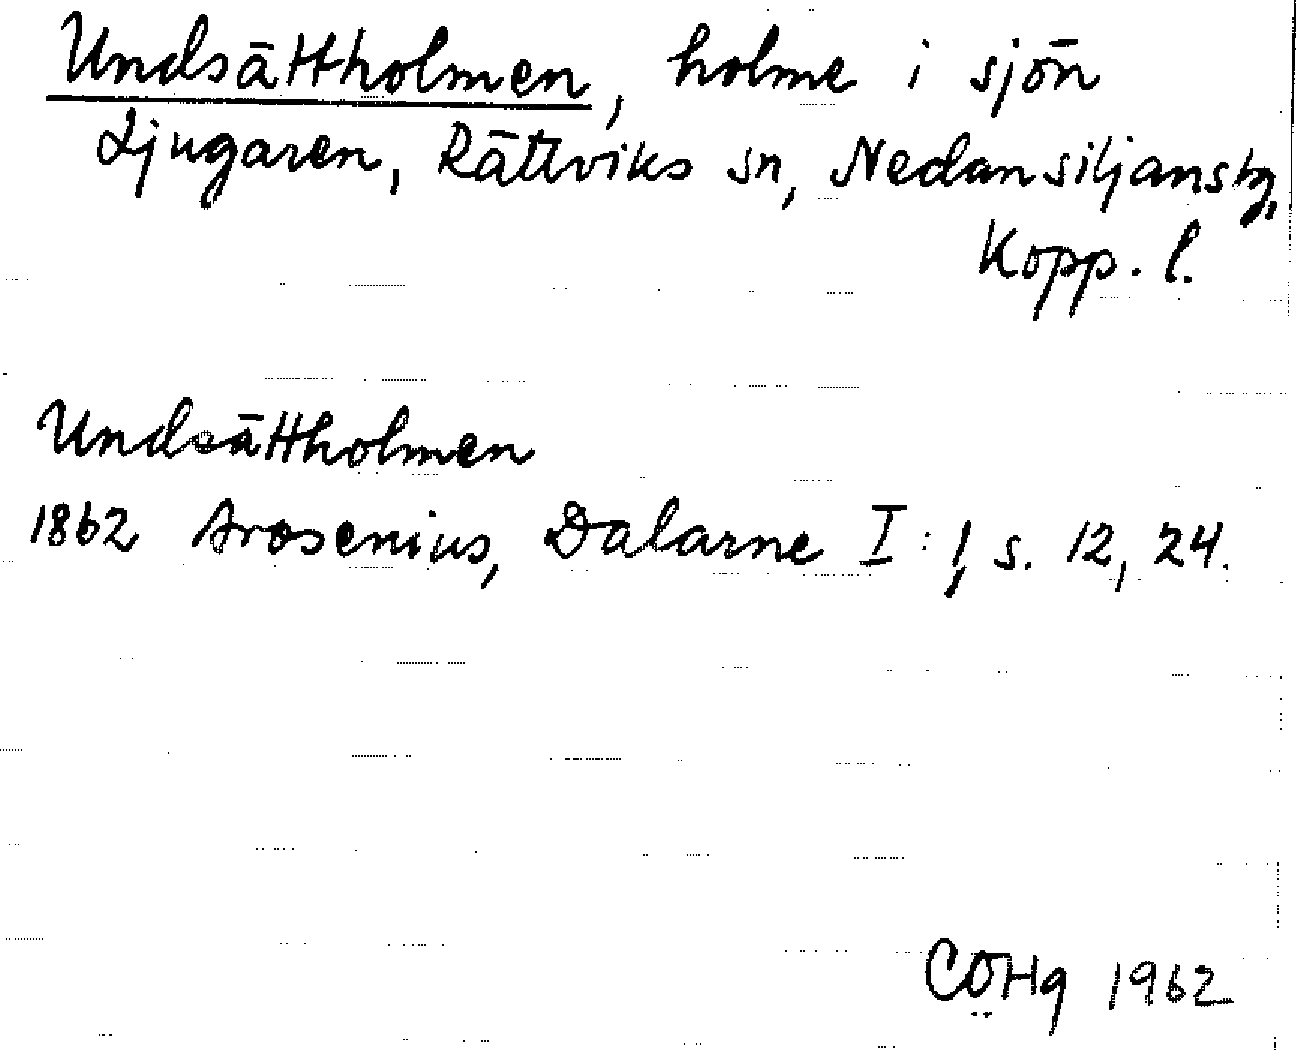 Undsättholmen, holme i sjön
Ljugaren, Rättviks sn, Nedansiljans tg,
Kopp. l.
Undsättholmen
1862 Arosenius, Dalarne I:1, s. 12, 24.
CÖHg 1962